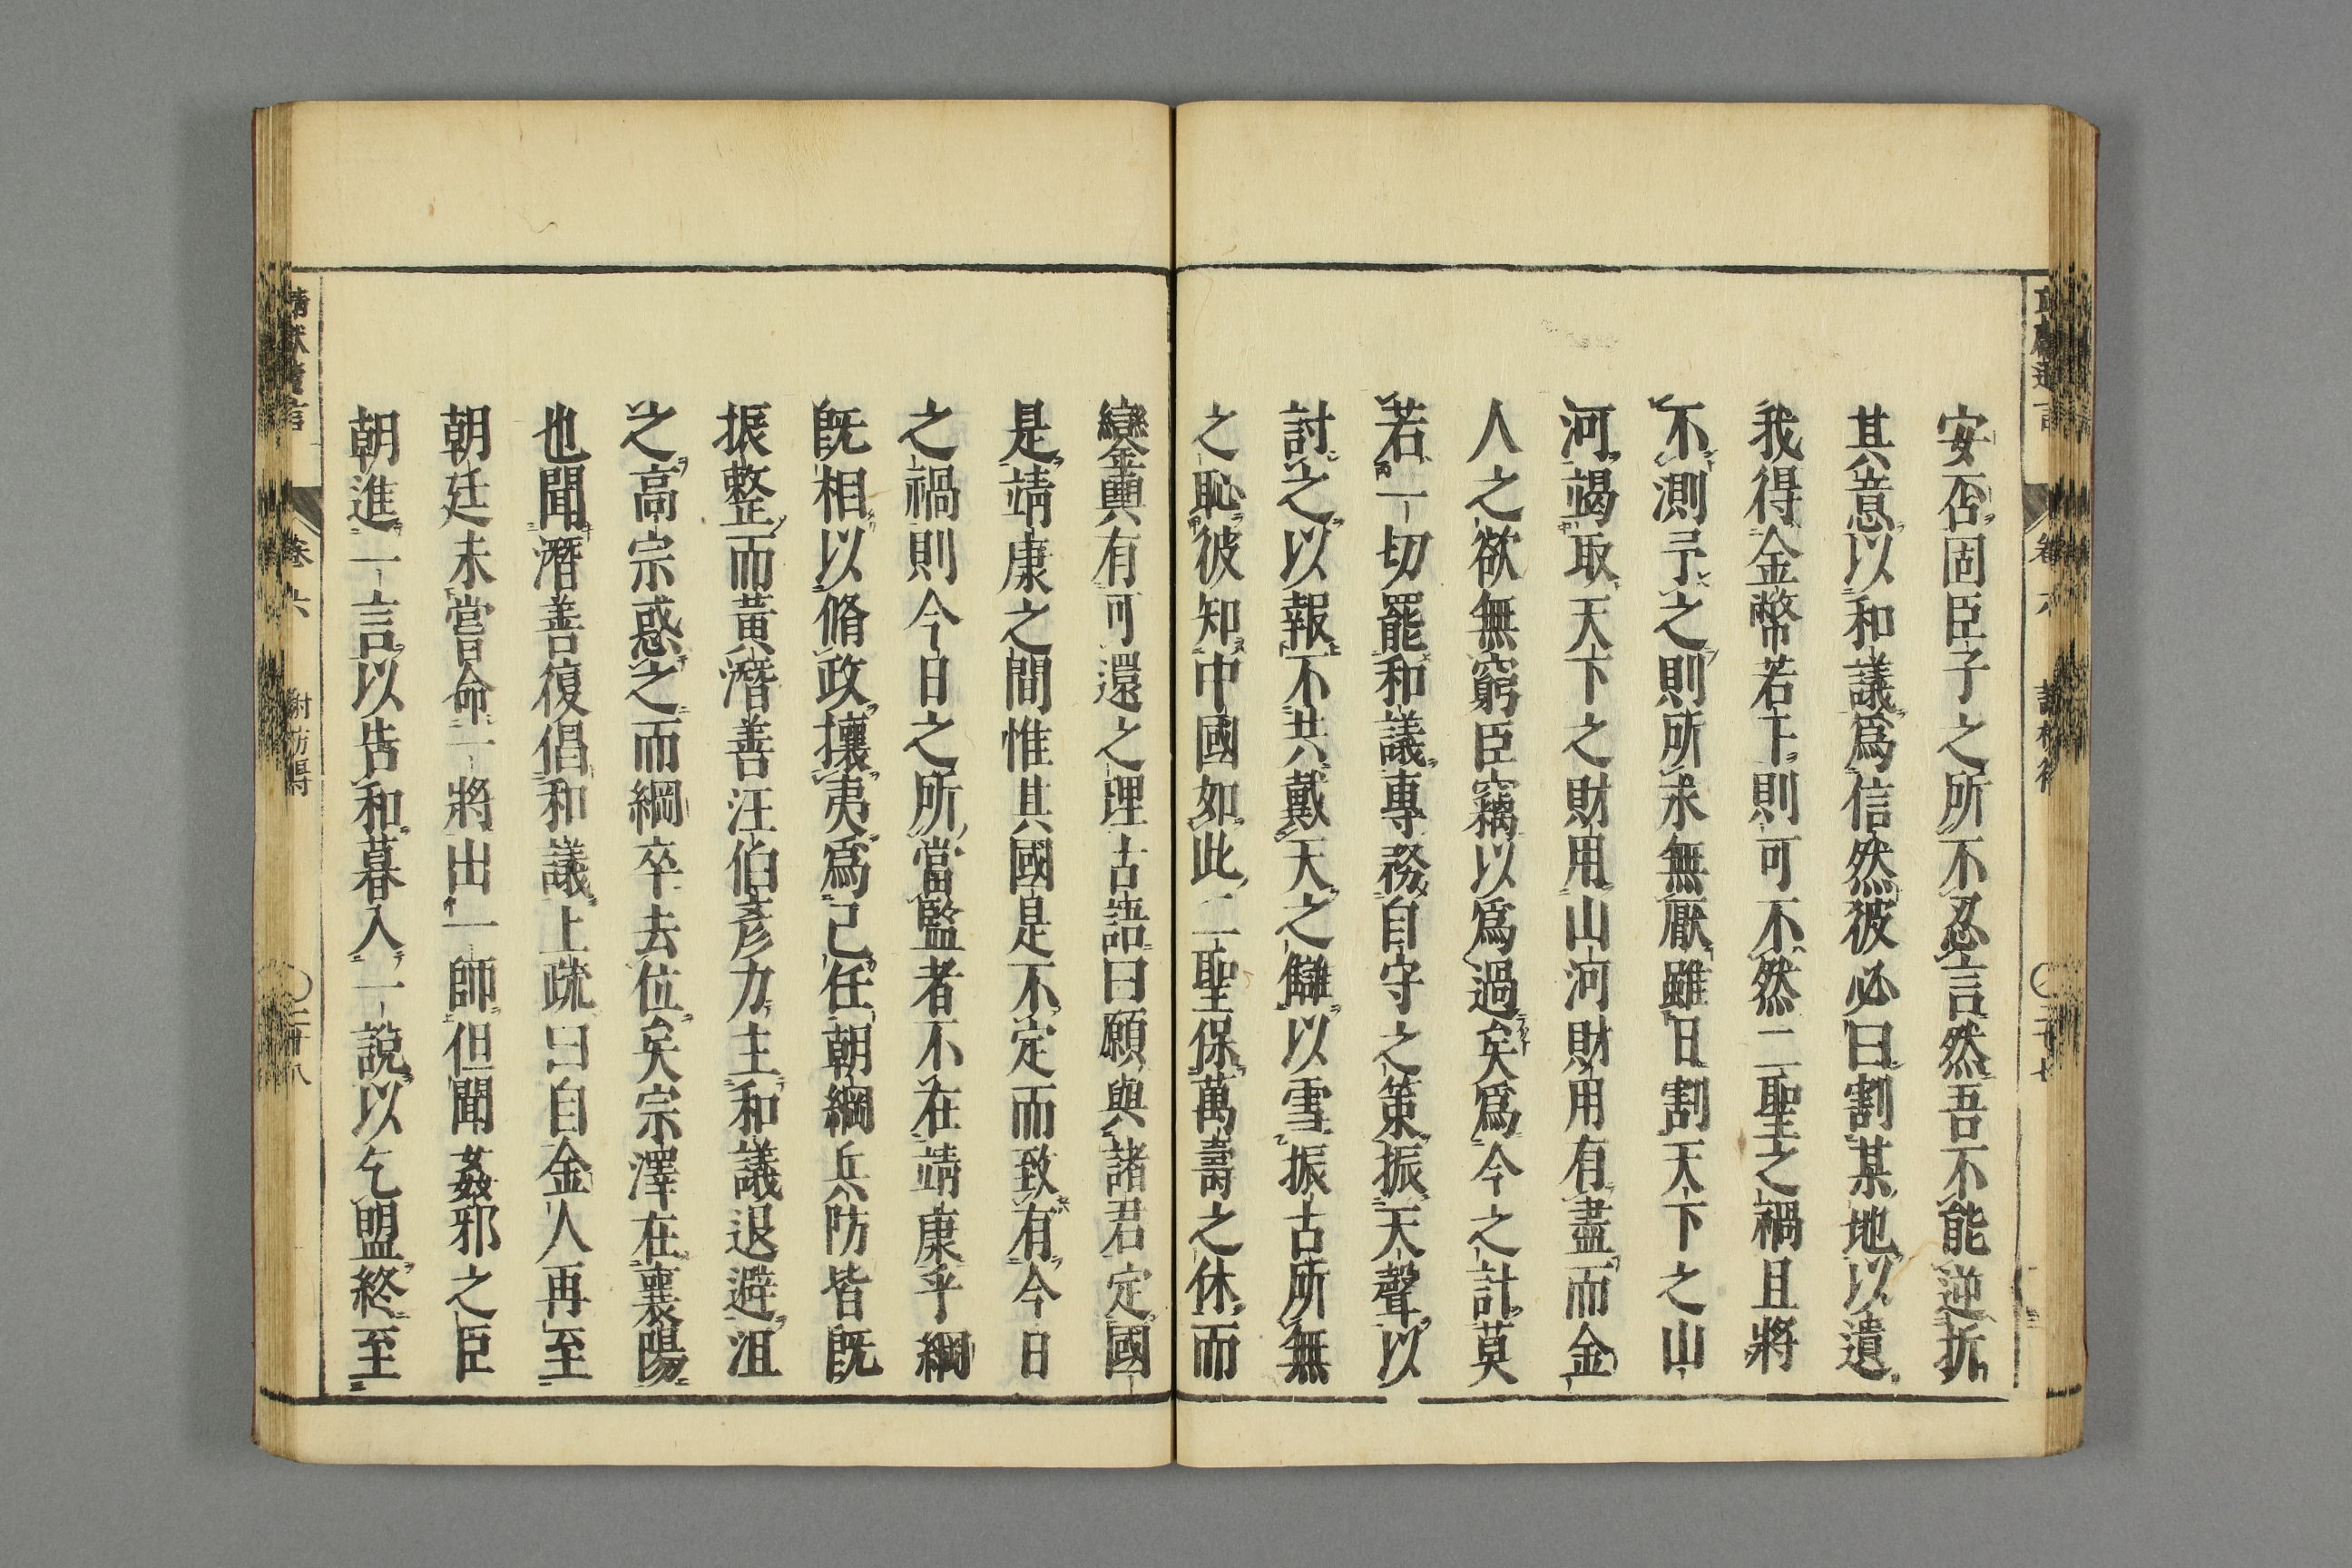 安否固臣子之所不忍言然吾不能逆折
其意以和議爲信然彼必曰割某地以遺
我得金幣若干則可不然二聖之禍且將
不測予之則所求無厭雖日割天下之山
河竭取天下之財用山河財用有盡而金
人之欲無窮臣竊以爲過矣爲今之計莫
若一切罷和議專務自守之策振天聲以
討之以報不共戴天之讎以雪振古所無
之恥彼知中國如此二聖保萬壽之休而
鑾輿有可還之理古語曰願與諸君定國
是靖康之間惟其國是不定而致有今日
之禍則今日之所當監者不在靖康乎綱
既相以脩政攘夷爲己任朝綱兵防皆既
振整而黃潛善汪伯彥力主和議退避沮
之高宗惑之而綱卒去位矣宗澤在襄陽
也聞潛善復倡和議上疏曰自金人再至
朝廷未嘗命一將出一師但聞姦邪之臣
朝進一言以告和暮入一說以乞盟終至
卷六 謝枋得 二十八